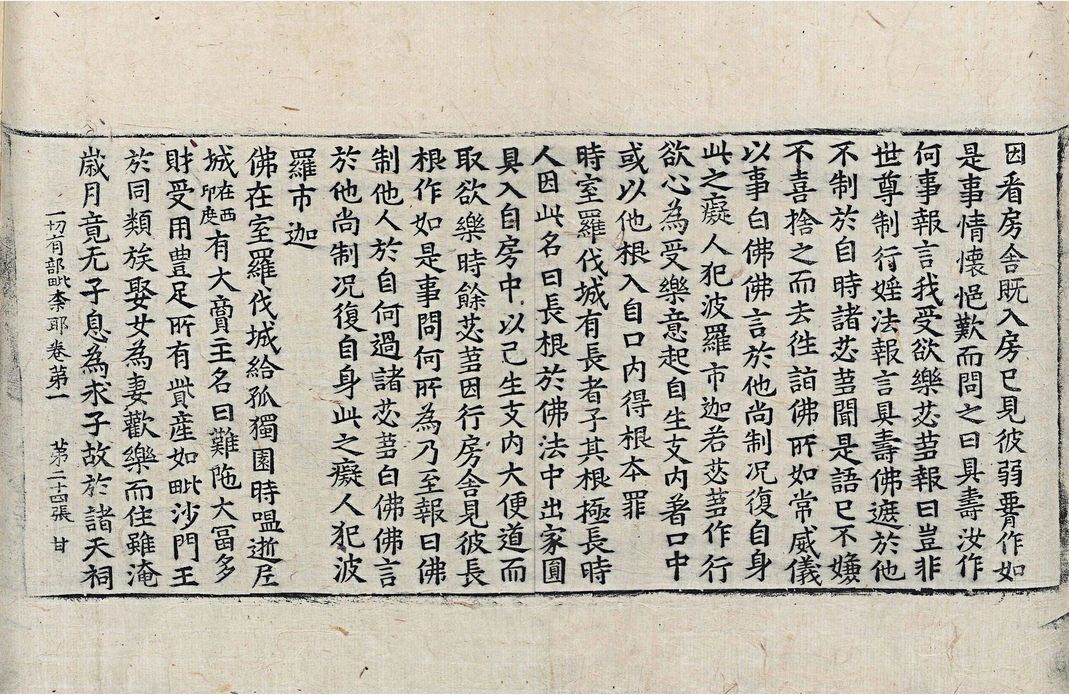 因看房舍既入房已見彼弱脊作如
是事情懷悒歎而問之曰具壽汝作
何事報言我受欲樂苾芻報曰豈非
世尊制行婬法報言具壽佛遮於他
不制於自時諸苾芻聞是語已不嫌
不喜捨之而去往詣佛所如常威儀
以事白佛佛言於他尚制况復自身
此之癡人犯波羅市迦若苾芻作行
欲心為受樂意起自生支内著口中
或以他根入自口内得根本罪
時室羅伐城有長者子其根極長時
人因此名曰長根於佛法中出家圓
具入自房中以己生支内大便道而
取欲樂時餘苾芻因行房舍見彼長
根作如是事問何所為乃至報曰佛
制他人於自何過諸苾芻白佛佛言
於他尚制况復自身此之癡人犯波
羅市迦
佛在室羅伐城給孤獨園時嗢逝尼
城在西印度有大主名曰難陁大冨多
財受用豊足所有貲産如毗沙門王
於同類族娶女為妻歡樂而住雖淹
歲月竟无子息為求子故於諸天祠
一切有部毗奈耶卷第一 第二十四張 甘